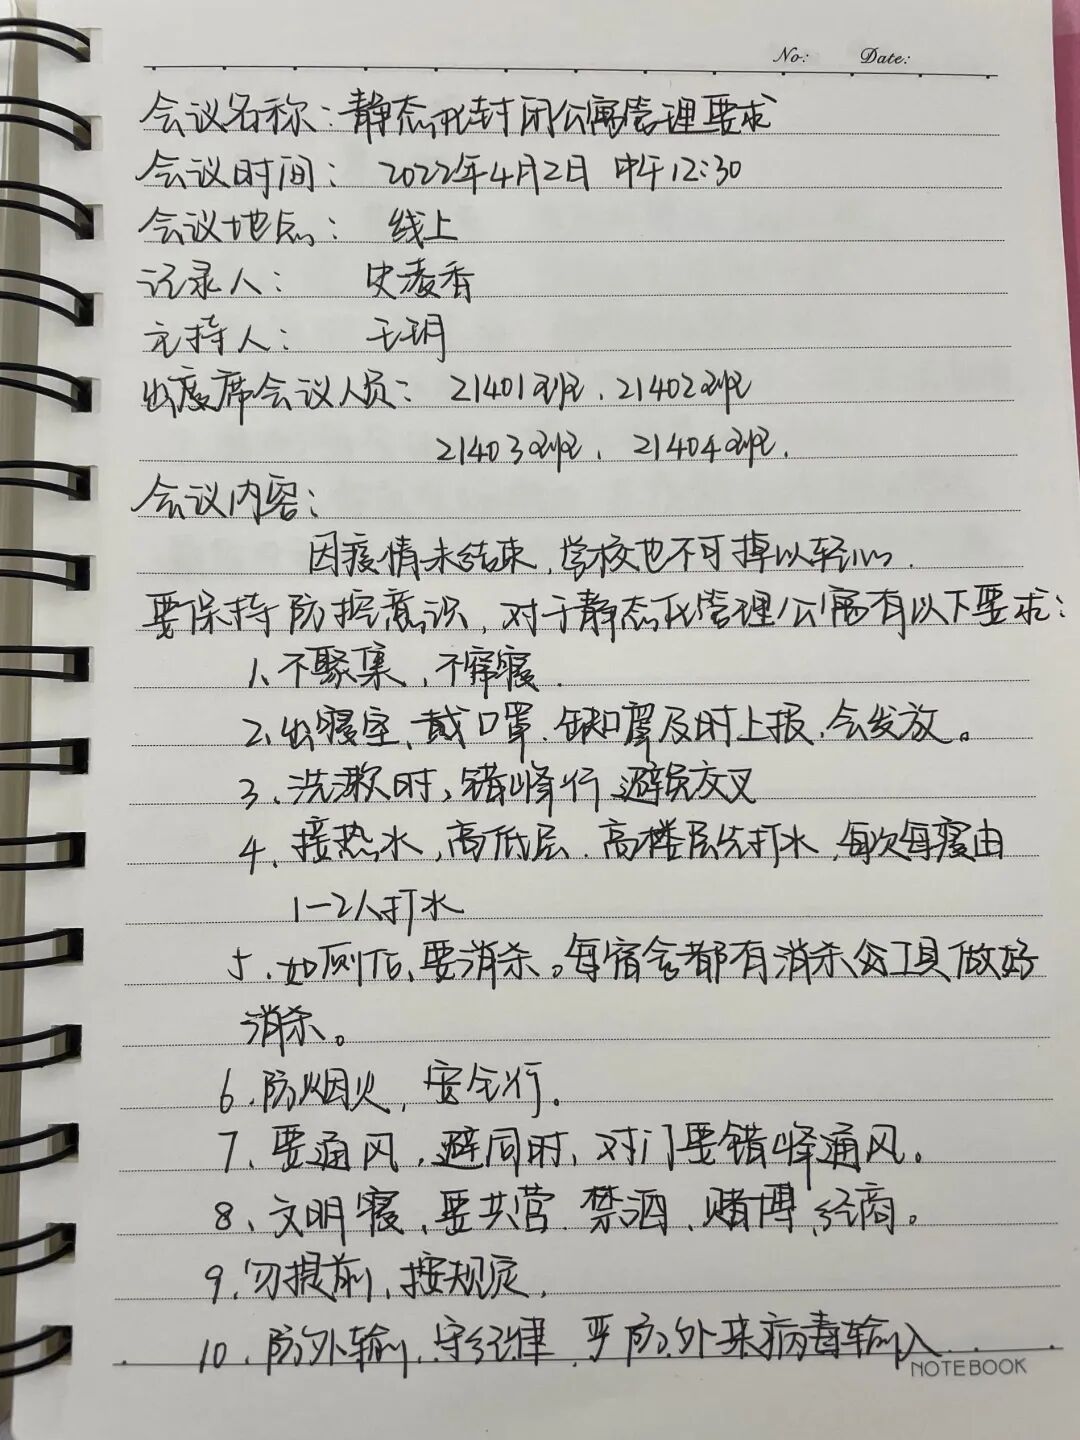 No: Date:
会议名称:静态化封闭公寓管理要求
会议时间: 2022年4月2日 中午12:30
会议地点: 线上
记录人: 史麦香
主持人: 王玥
出席会议人员: 21401班、21402班
21403班、21404班.
会议内容:
因疫情未结束,学校也不可掉以轻心.
要保持防控意识,对于静态化管理公寓有以下要求:
1、不聚集,不窜寝.
2、出寝室、戴口罩.缺口罩及时上报,会发放。
3、洗漱时,错峰行 避免交叉
4、接热水,高低层.高楼层先打水,每次每寝由
1-2人打水
5、如厕后、要消杀。每宿舍都有消杀工具做好
消杀。
6、防烟火,安全行.
7、要通风,避同时,对门要错峰通风。
8、文明寝,要共营.禁酒、赌博、经商。
9、勿提前,按规定,
10、防外输,守纪律,严防外来病毒输入
NOTEBOOK